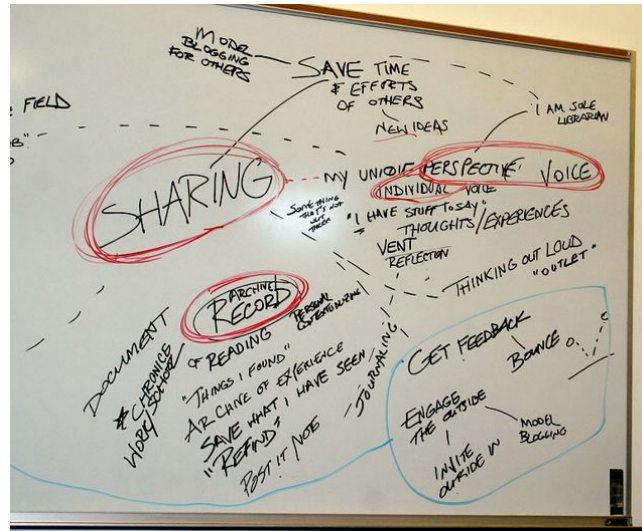 MODEL
BLOGGING
FOR OTHERS
SAVE TIME
& EFFORTS
OF OTHERS
NEW IDEAS
I AM SOLE
LIBRARIAN
FIELD
SHARING
MY UNIQUE PERSPECTIVE VOICE
INDIVIDUAL VOICE
SOMETHING
THAT'S NOT
OUT
THERE
"I HAVE STUFF TO SAY"
THOUGHTS/EXPERIENCES
VENT
REFLECTION
THINKING OUT LOUD
"OUTLET"
ARCHIVE
RECORD
OF READING
PERSONAL
"THINGS I FOUND"
ARCHIVE OF EXPERIENCE
SAVE WHAT I HAVE SEEN
"REFIND"
POST IT NOTE
DOCUMENT
& CHRONICLE
WORK/SCHOOL
JOURNALING
GET FEEDBACK
BOUNCE
ENGAGE
THE OUTSIDE
MODEL
BLOGGING
INVITE
OUTSIDE IN